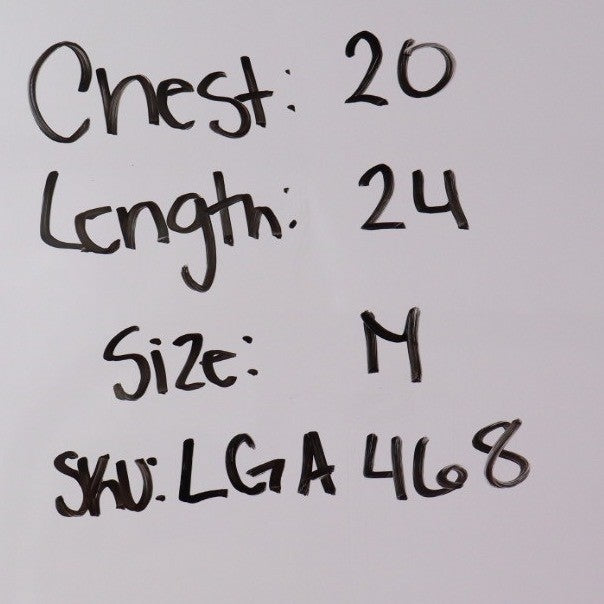 Chest: 20
Length: 24
Size: M
SKU: LGA 468